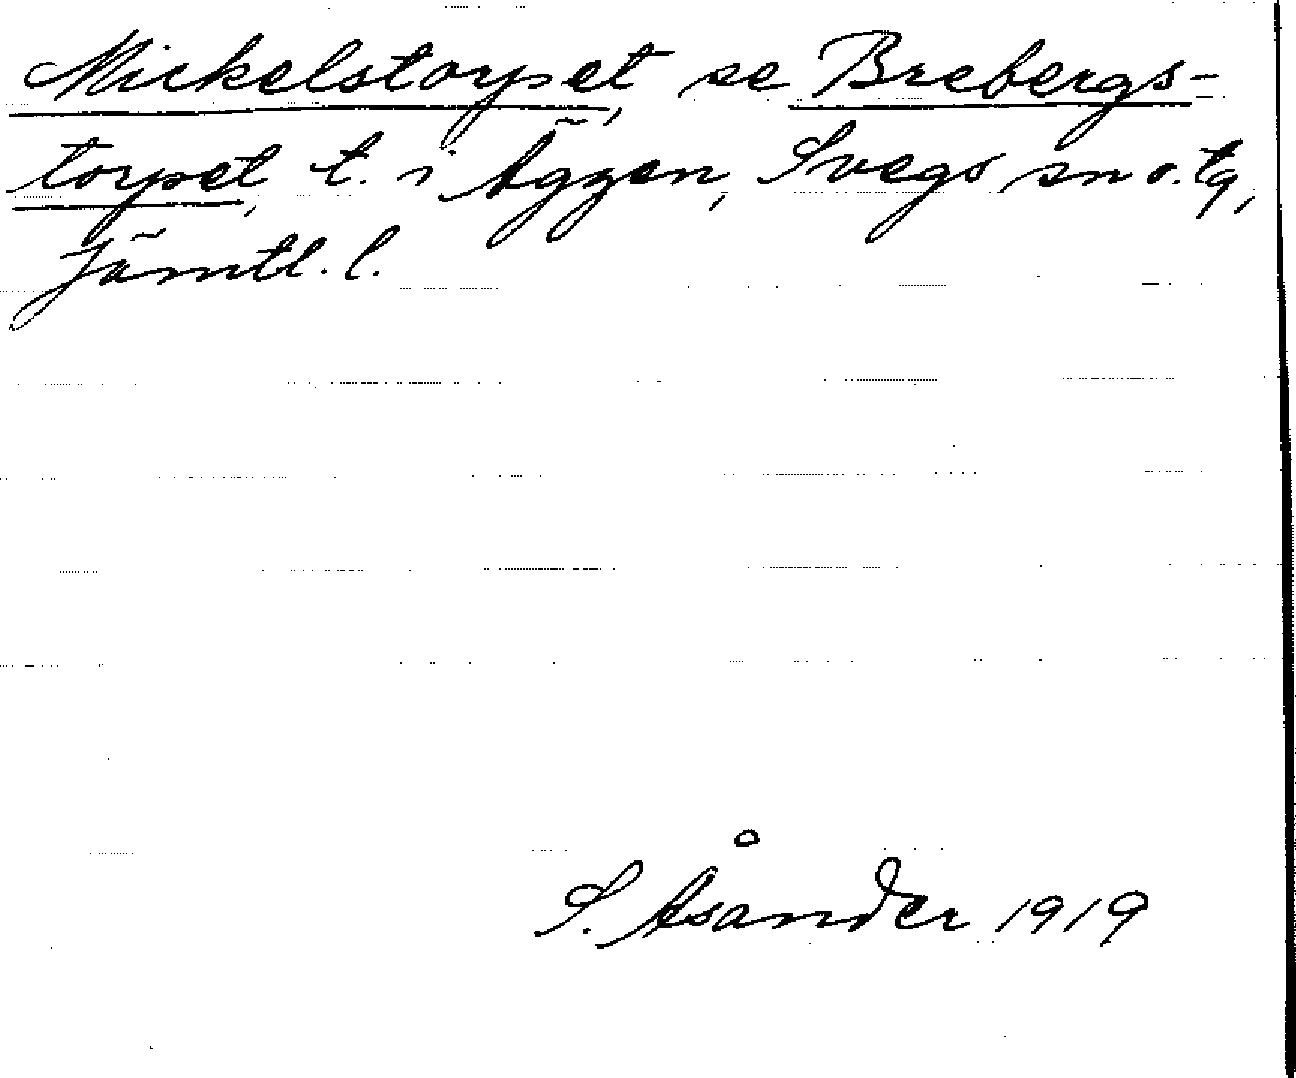 Mickelstorpet, se Brebergs-
torpet, t. i Äggen, Svegs sn o. tg,
Jämtl. l.
S. Åsander 1919